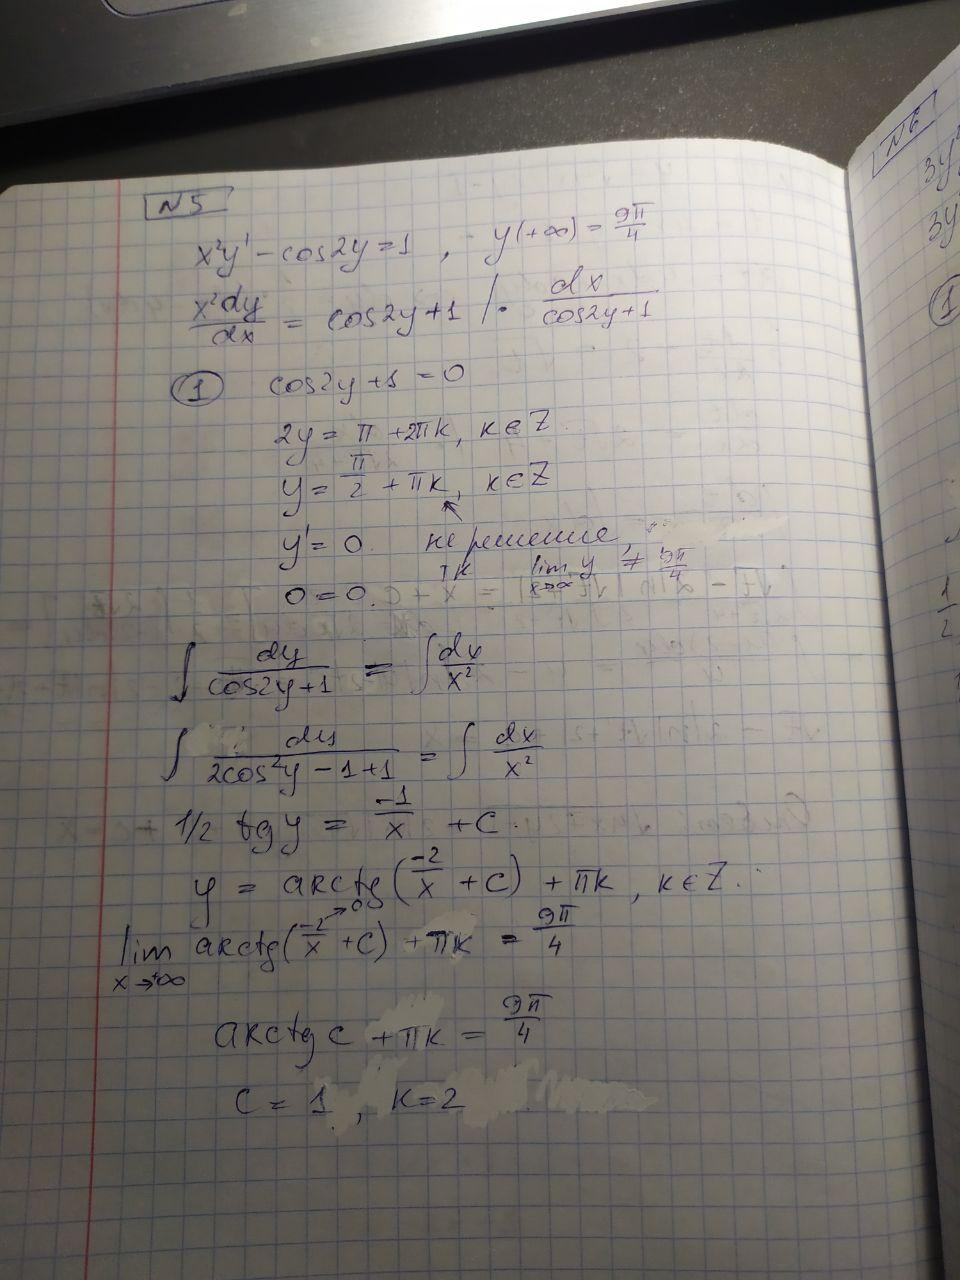 N5
x²y' - cos2y = 1 , y(+∞) = 9π/4
x²dy/dx = cos2y+1 | · dx/cos2y+1
1 cos2y+1 = 0
2y = π + 2πk, k∈Z.
y = π/2 + πk, k∈Z
y' = 0. не решение,
тк lim x→∞ y ≠ 9π/4
0 = 0.
∫ dy/cos2y+1 = ∫ dx/x²
∫ dy/2cos²y - 1 + 1 = ∫ dx/x²
1/2 tg y = -1/x + C.
y = arctg(-2/x + C) + πk, k∈Z.
lim x→+∞ arctg(-2/x →0 + C) + πk = 9π/4
arctg C + πk = 9π/4
C = 1, k = 2
N6
3y
3y
1
1/2